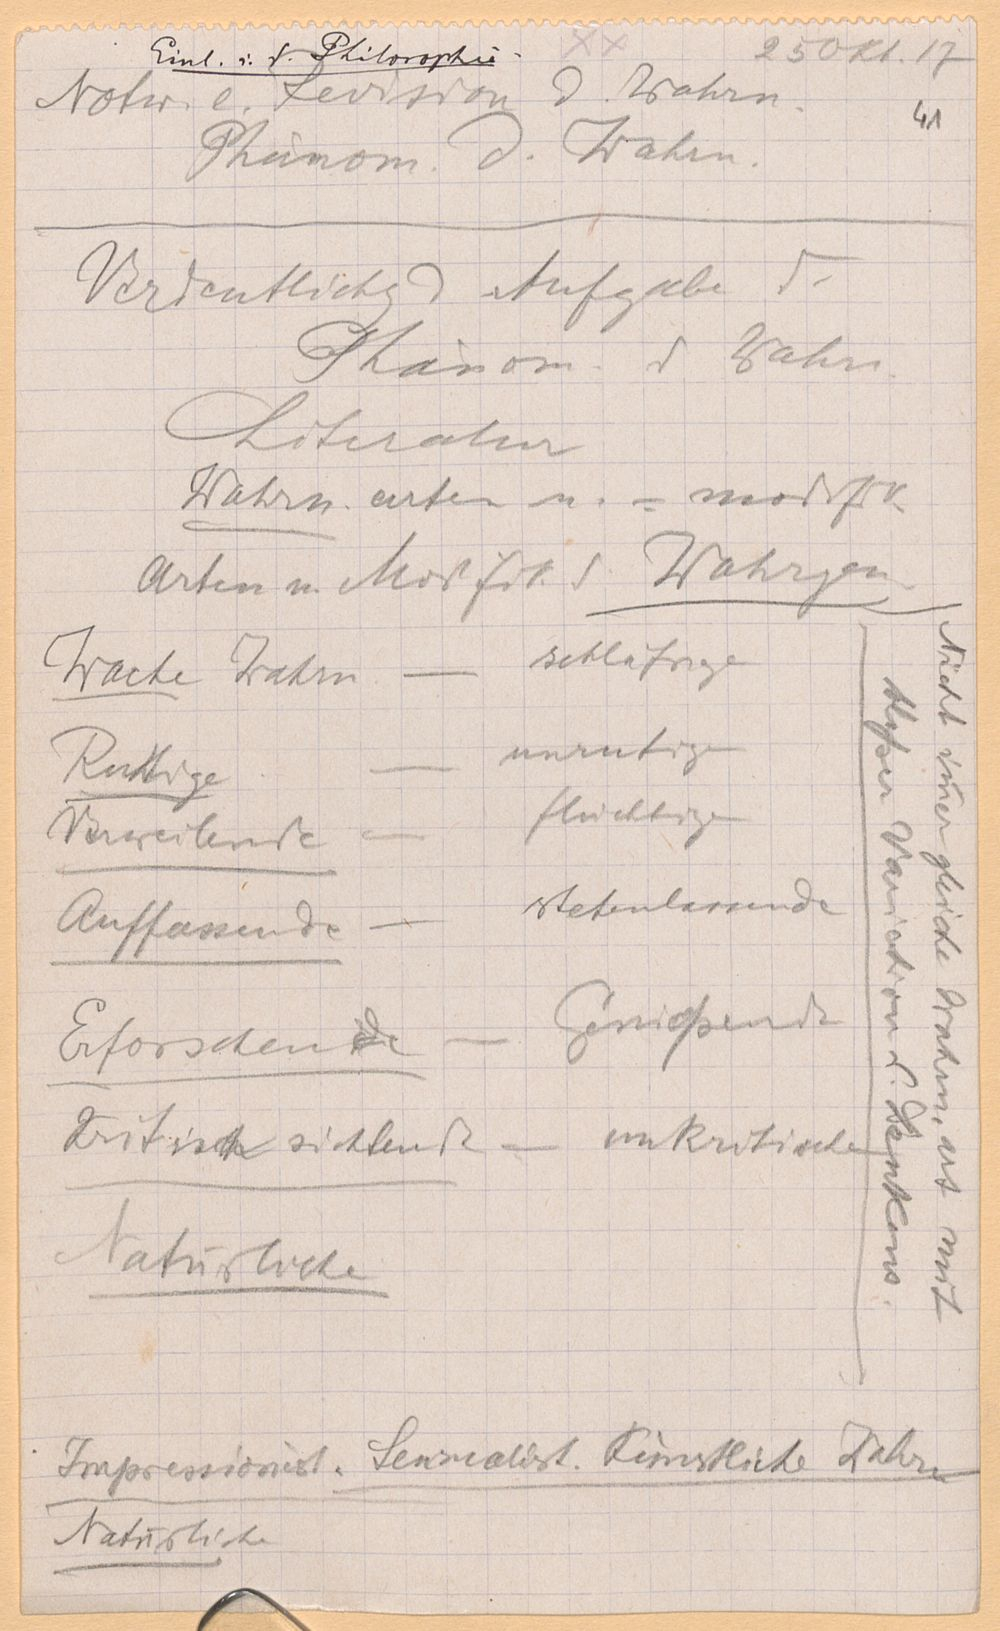 Einl. i. d. Philosophie
25 Okt. 17
41
Notw. e. Revision d. Wahrn.
Phänom. d. Wahrn.
Verdeutlichg d Aufgabe d.
Phänom. d Wahrn.
Literatur
Wahrn.arten u. = modifik.
Arten u. Modifik. d Wahrgen.
Wache Wahrn. — schläfrige
Ruhige — unruhige
Verweilende — flüchtige
Auffassende — stehenlassende
Erforschende — Genießende
Kritisch sichtende — unkritische
Natürliche
Nicht immer gleiche Wahrn. mit
Variation d. Denkens.
Impressionist. Sensualist. Künstliche Wahrn
Natürliche